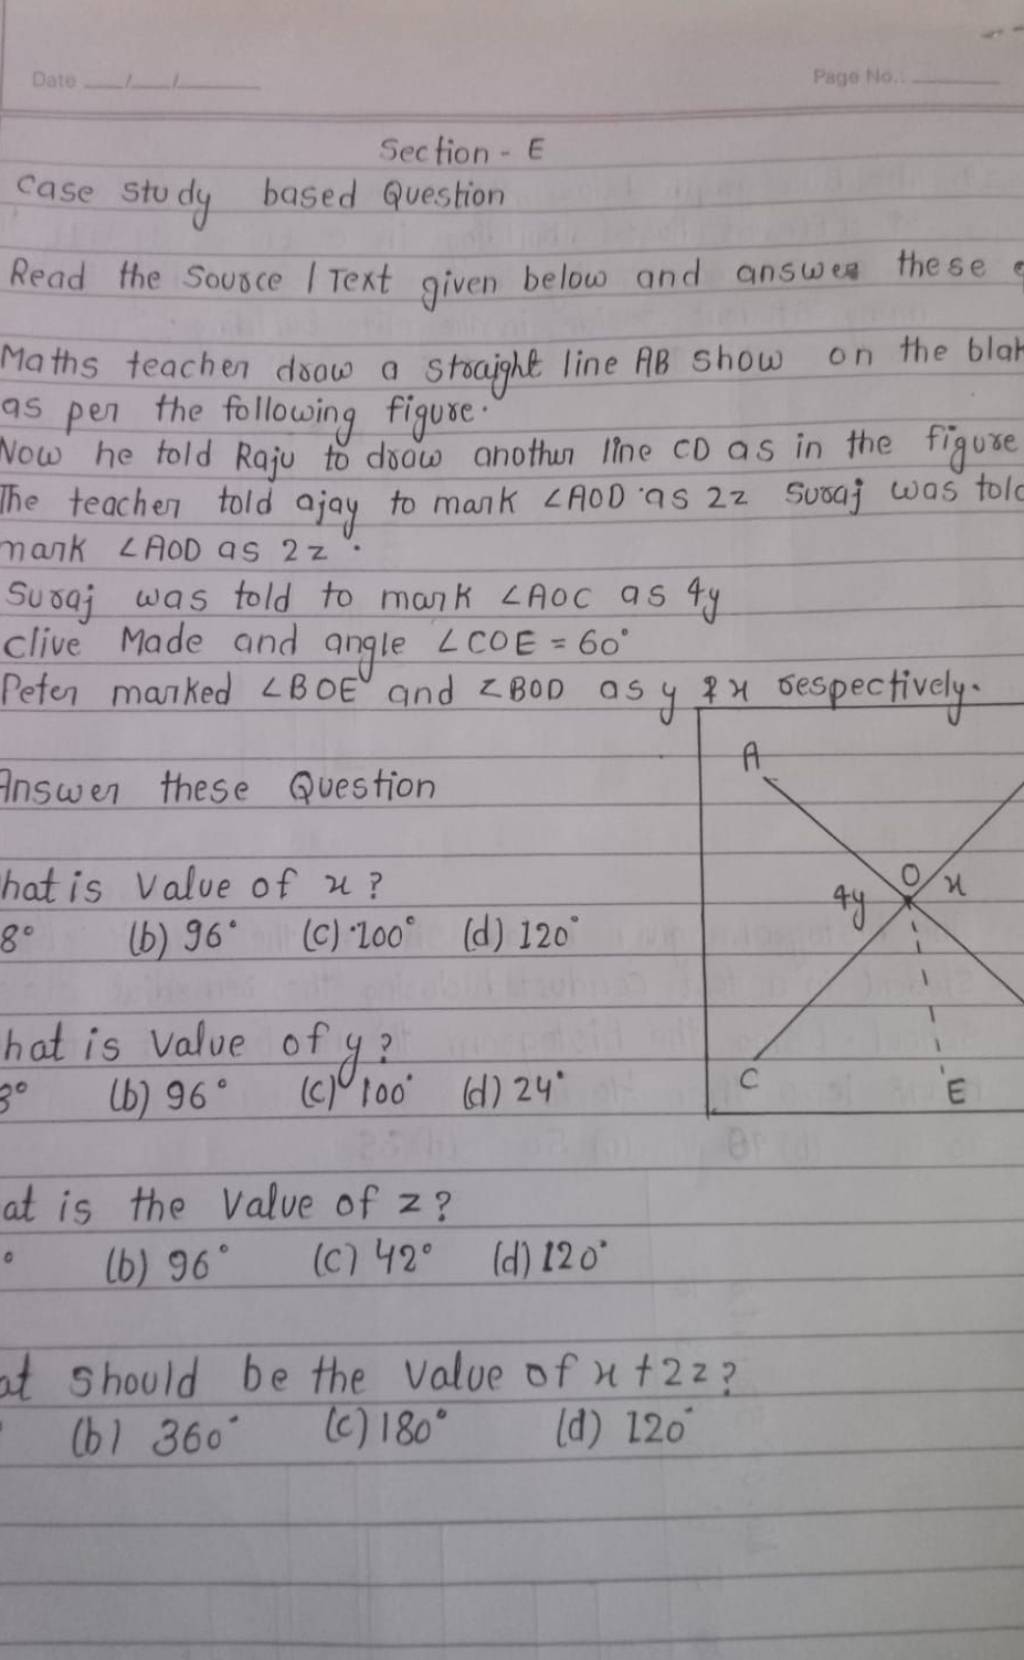 Date __/__/____ Page No.: ____
Section - E
Case study based Question
Read the Source / Text given below and answer these
Maths teacher draw a straight line AB show on the blak
as per the following figure.
Now he told Raju to draw another line CD as in the figure
The teacher told ajay to mark ∠AOD as 2z Suraj was told
mark ∠AOD as 2z.
Suraj was told to mark ∠AOC as 4y
clive Made and angle ∠COE = 60°
Peter marked ∠BOE and ∠BOD as y & x respectively.
Answer these Question
hat is Value of x?
8° (b) 96° (c) 100° (d) 120°
hat is Value of y?
8° (b) 96° (c) 100° (d) 24°
at is the Value of z?
° (b) 96° (c) 42° (d) 120°
at should be the value of x + 2z?
(b) 360° (c) 180° (d) 120°
A
O x
4y
C
E